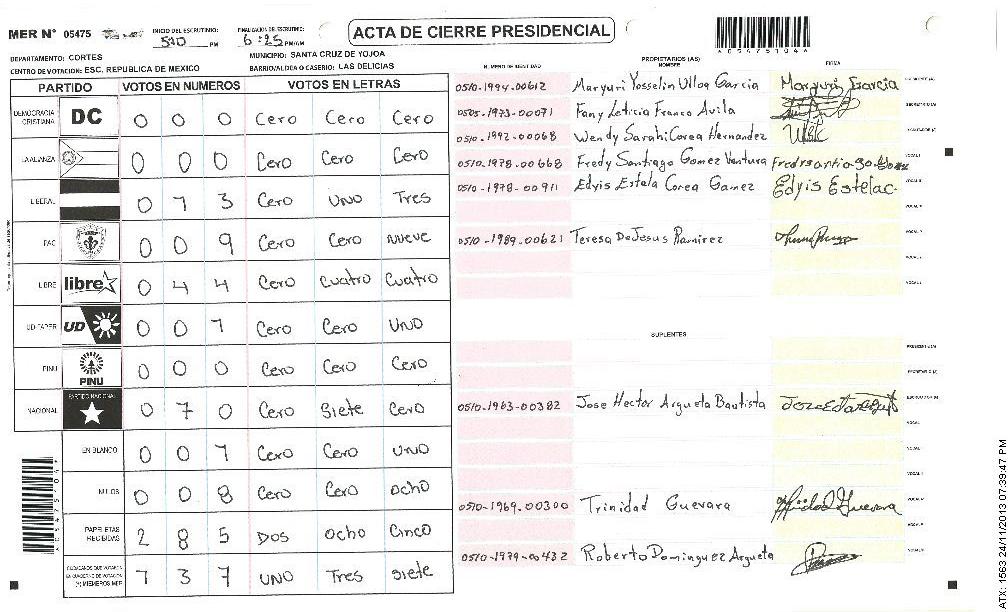 MER N° 05475
INICIO DEL ESCRUTINIO: 510 PM
FINALIZACION DEL ESCRUTINIO: 6:25 PM/AM
ACTA DE CIERRE PRESIDENCIAL
A05475104A
DEPARTAMENTO: CORTES
MUNICIPIO: SANTA CRUZ DE YOJOA
CENTRO DE VOTACION: ESC. REPUBLICA DE MEXICO
BARRIO/ALDEA O CASERIO: LAS DELICIAS
PARTIDO VOTOS EN NUMEROS VOTOS EN LETRAS
DEMOCRACIA CRISTIANA DC 0 0 0 Cero Cero Cero
LA ALIANZA 0 0 0 Cero Cero Cero
LIBERAL 0 1 3 Cero UNO Tres
PAC 0 0 9 Cero Cero Nueve
LIBRE libre 0 4 4 Cero Cuatro Cuatro
UD-FAPER UD 0 0 1 Cero Cero UNO
PINU PINU 0 0 0 Cero Cero Cero
NACIONAL PARTIDO NACIONAL 0 7 0 Cero Siete Cero
EN BLANCO 0 0 1 Cero Cero UNO
NULOS 0 0 8 Cero Cero ocho
PAPELETAS RECIBIDAS 2 8 5 Dos ocho Cinco
CIUDADANOS QUE VOTARON EN CUADERNO DE VOTACION (+) MIEMBROS MER 1 3 7 UNO Tres Siete
PROPIETARIOS (AS)
NUMERO DE IDENTIDAD NOMBRE FIRMA
0510-1994-00612 Maryuri Yosselin Ulloa Garcia Maryuri Garcia PRESIDENTE (A)
0505-1973-00071 Fany Leticia Franco Avila SECRETARIO (A)
0510-1992-00068 Wendy Sarahi Corea Hernandez ESCRUTADOR (A)
0510-1978-00668 Fredy Santiago Gomez Ventura VOCAL I
0510-1978-00911 Edyis Estela Corea Gamez Edyis Estelac. VOCAL II
0510-1989-00621 Teresa De Jesus Ramirez
SUPLENTES
PRESIDENTE (A)
SECRETARIO (A)
0510-1963-00382 Jose Hector Argueta Bautista ESCRUTADOR (A)
0510-1969-00300 Trinidad Guevara Trinidad Guevara
0510-1979-00432 Roberto Dominguez Argueta
ATX: 1563 24/11/2013 07:39:47 PM